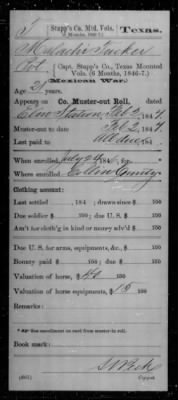 T Stapp's Co. Mtd. Vols. Texas.
(6 Months, 1846-7.)
Malachi Tucker
Pvt, Capt. Stapp's Co., Texas Mounted
Vols. (6 Months, 1846-7.)
(Mexican War.)
Age 21 years.
Appears on Co. Muster-out Roll, dated
Elm Station, Feb 2, 1847.
Muster-out to date Feb 2, 1847.
Last paid to All due, 184 .
When enrolled July 24, 1846.
Where enrolled Collin County.
Clothing account:
Last settled , 184 ; drawn since $ 100
Due soldier $ 100; due U. S. $ 100
Am't for cloth'g in kind or money adv'd $ 100
Due U. S. for arms, equipments, &c., $ 100
Bounty paid $ 100; due $ 100
Valuation of horse, $ 40 100
Valuation of horse equipments, $ 15 100
Remarks:
* See enrollment on card from muster-in roll.
Book mark:
(661) Copyist.